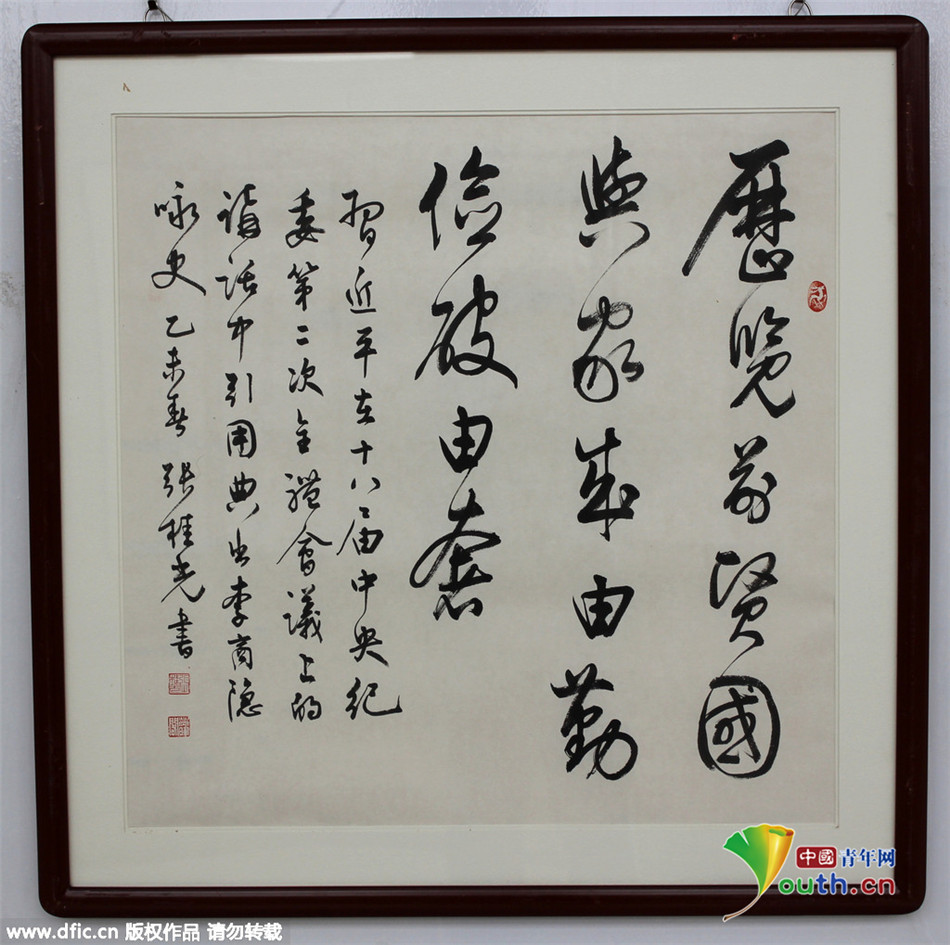 歷覽前賢國
與家成由勤
儉破由奢
習近平在十八届中央纪
委第二次全體會議上的
講话中引用典出李商隐
咏史 乙未春 張桂光書
中國青年网
Youth.cn
www.dfic.cn 版权作品 请勿转载